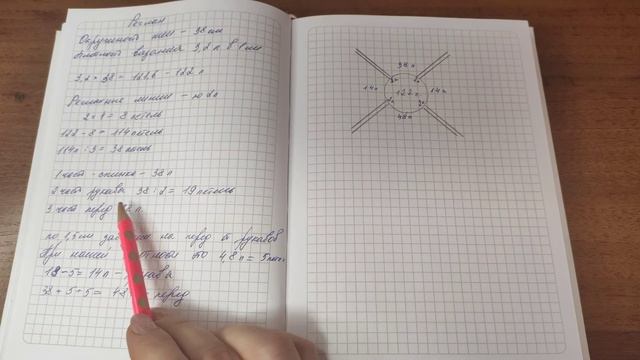 Реглан
Окружность шеи - 38 см
Плотность вязания 3,2 п в 1 см
3,2 × 38 = 121,6 - 122 п
Регланные линии - по 2 п
2 × 4 = 8 петель
122 - 8 = 114 петель
114 п : 3 = 38 петель
1 часть - спинка - 38 п
2 часть рукава 38 : 2 = 19 петель
3 часть перед п
по 1,5 см на перед от рукавов
При нашей 4,8 п = 5 пет.
19 - 5 = 14 п -
38 + 5 + 5 = 48 перед
38 п
14 п
122 п
14 п
48 п